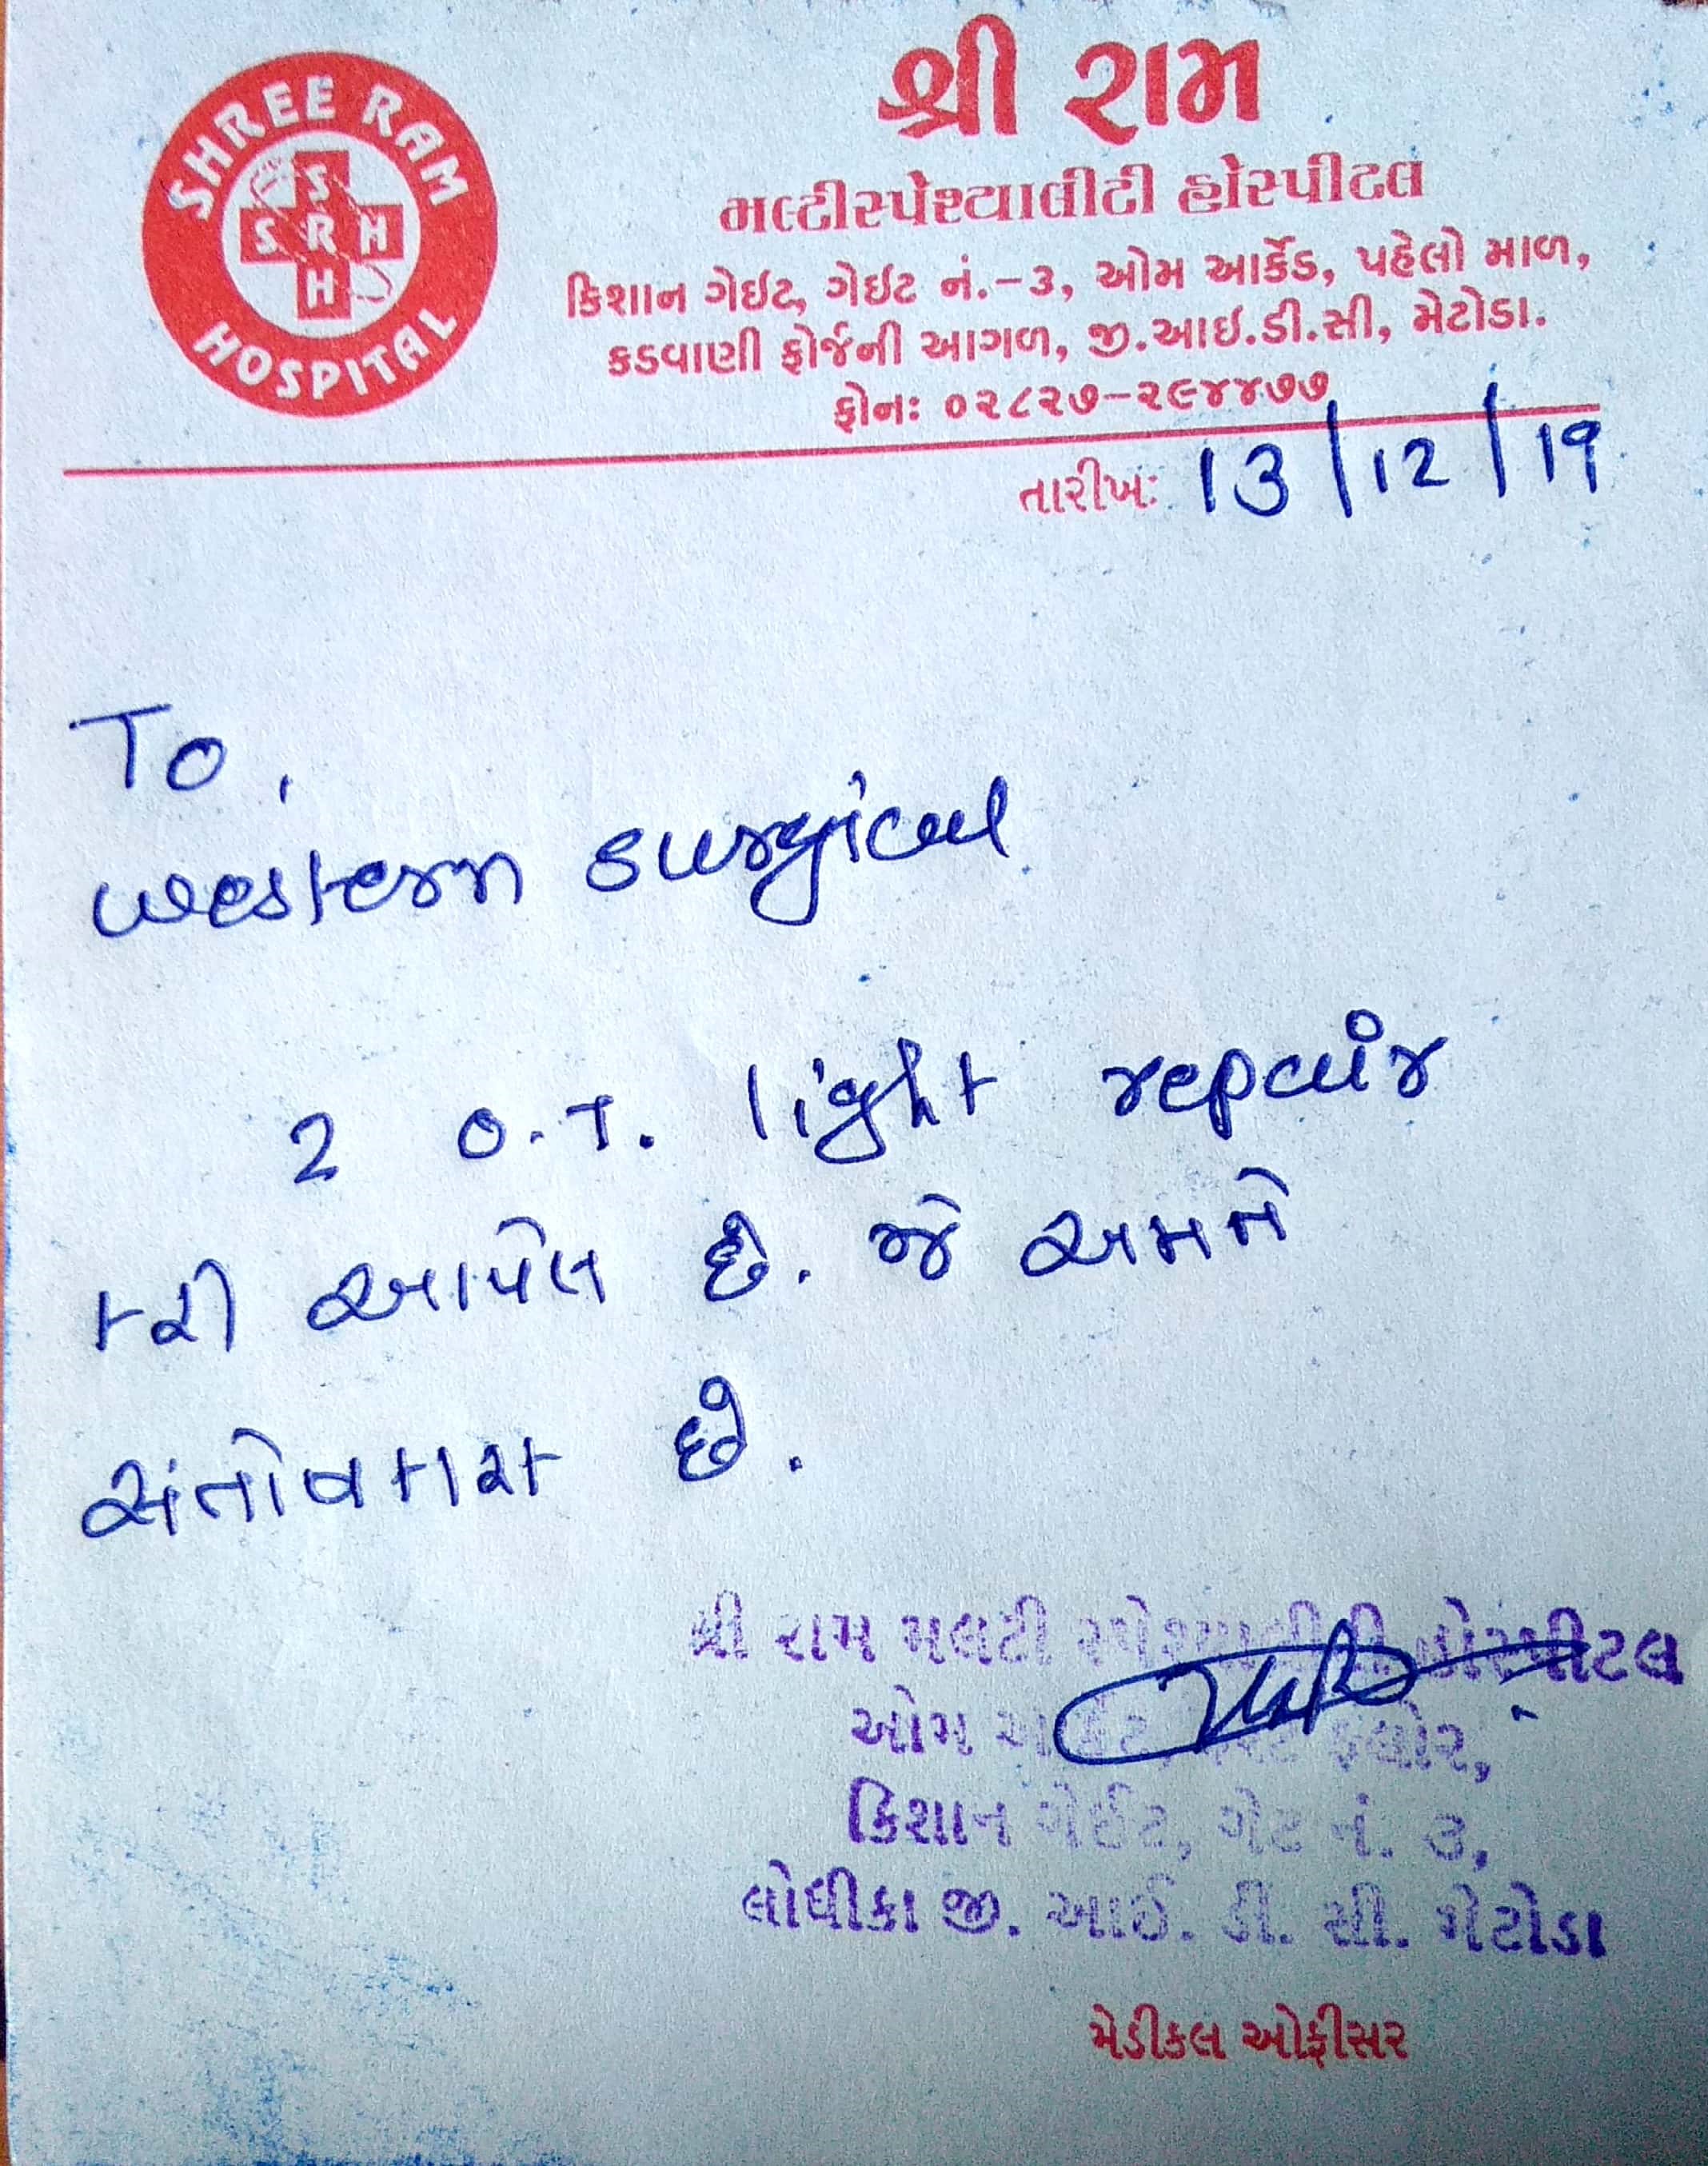 SHREE RAM
HOSPITAL
S
S R H
H
શ્રી રામ
મલ્ટીસ્પેશ્યાલીટી હોસ્પીટલ
કિશાન ગેઈટ, ગેઈટ નં.-૩, ઓમ આર્કેડ, પહેલો માળ,
કડવાણી ફોર્જની આગળ, જી.આઈ.ડી.સી, મેટોડા.
ફોનઃ ૦૨૮૨૭-૨૯૪૪૭૭
તારીખઃ 13/12/19
To,
western surgical
2 O.T. light repair
કરી આપેલ છે. જે અમને
સંતોષકારક છે.
શ્રી રામ મલટી સ્પેશ્યાલીટી હોસ્પીટલ
ઓમ ફ્લોર,
કિશાન ગેઈટ, ગેટ નં. ૩,
લોધીકા જી. આઈ. ડી. સી. મેટોડા
મેડીકલ ઓફીસર